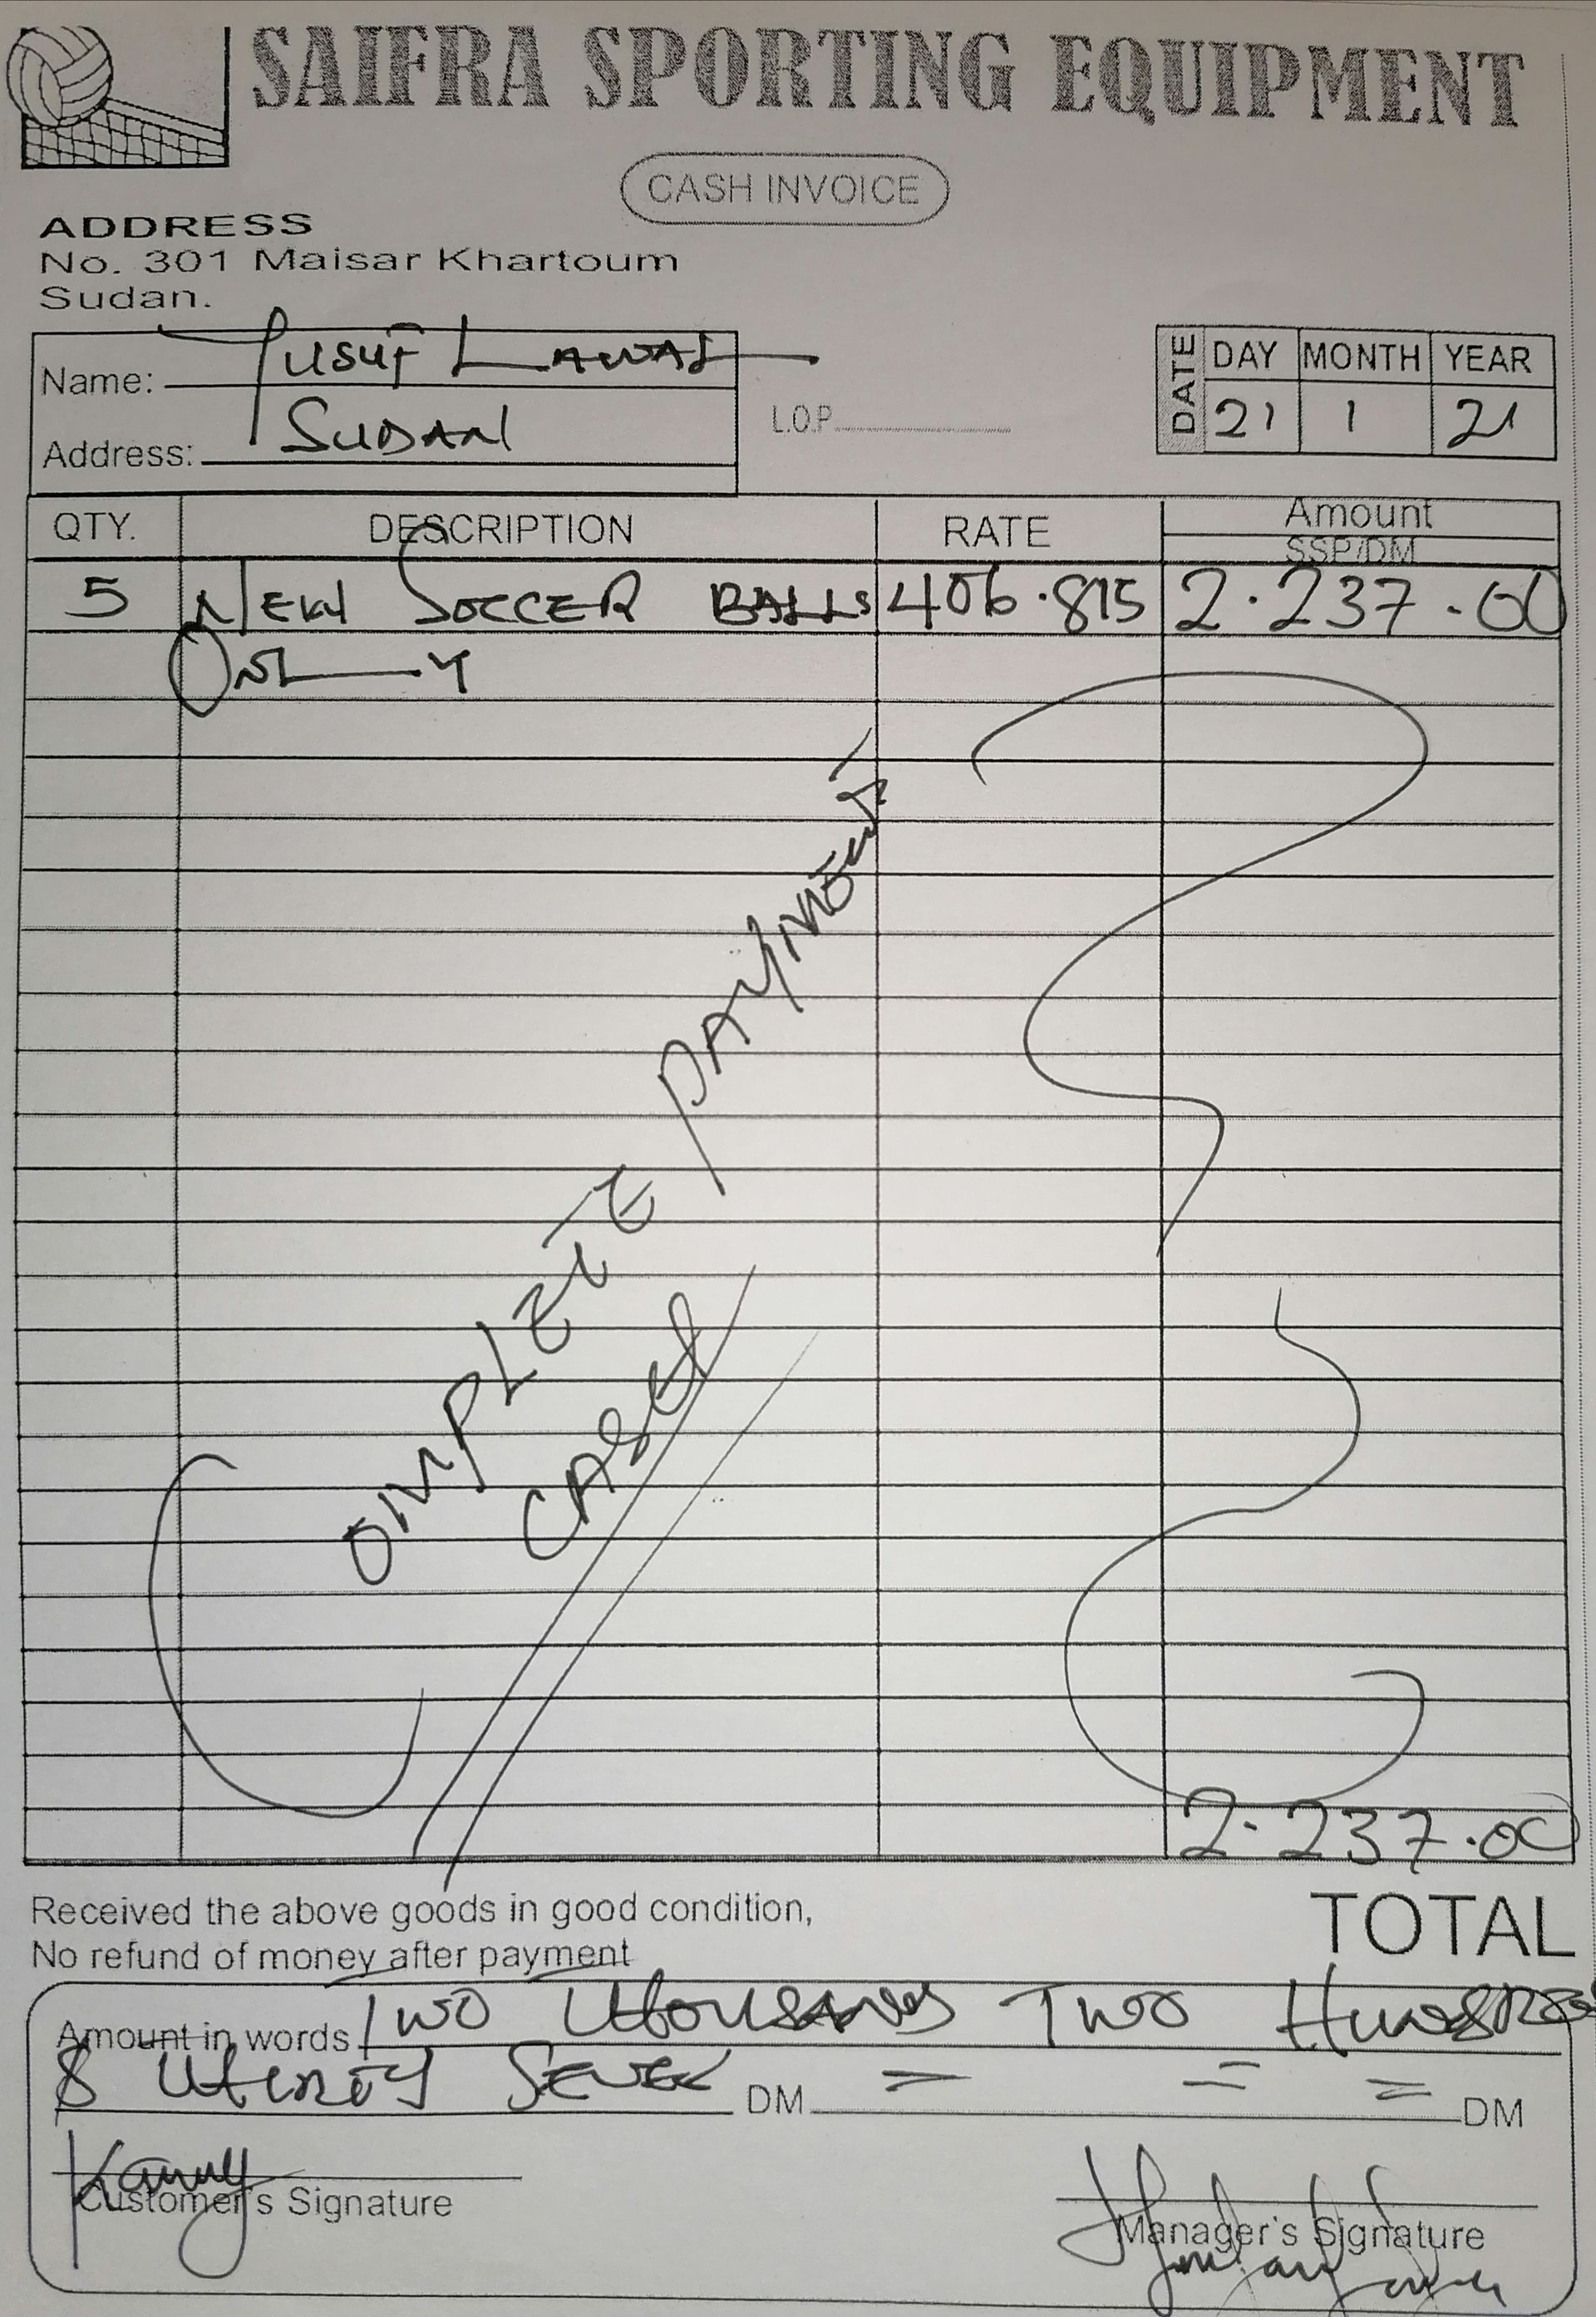 SAIFRA SPORTING EQUIPMENT
CASH INVOICE
ADDRESS
No. 301 Maisar Khartoum
Sudan.
Name: Yusuf Lawal
Address: SUDAN
L.O.P
DATE DAY MONTH YEAR
21 1 21
QTY. DESCRIPTION RATE Amount
SSP/DM
5 NEW SOCCER BALLS 406.815 2.237.00
ONLY
COMPLETE PAYMENT
CASH
2.237.00
Received the above goods in good condition,
No refund of money after payment
TOTAL
Amount in words Two thousands Two Hundred
& thirty Seven DM = = = DM
Customer's Signature
Manager's Signature